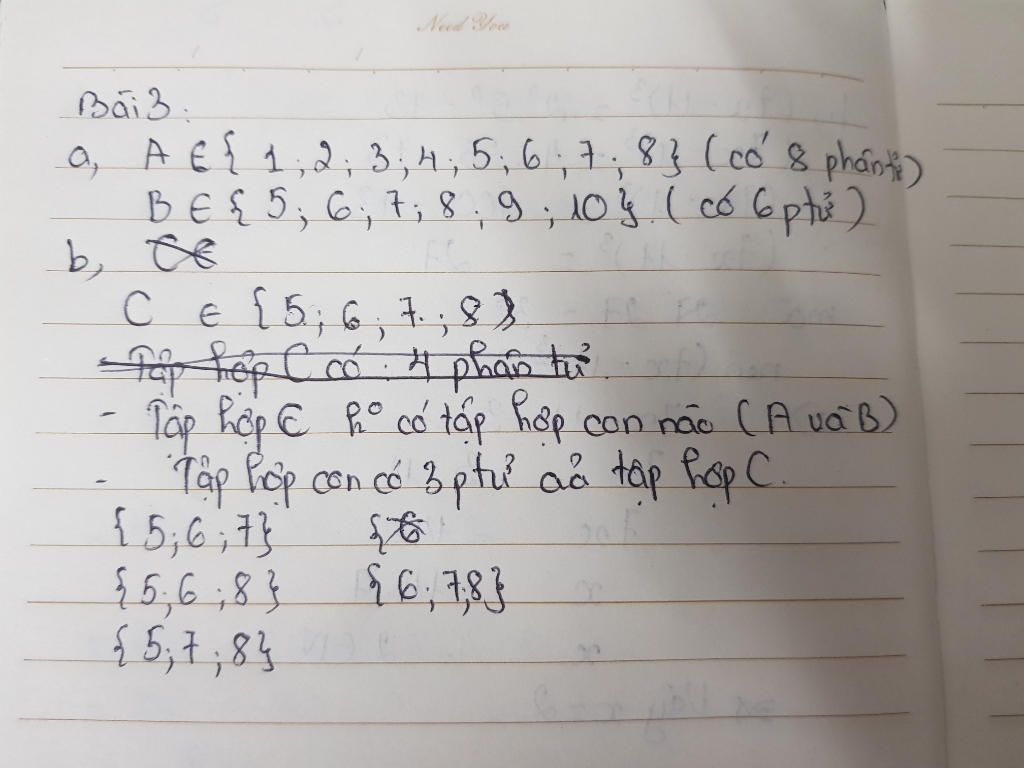 Need You
Bài 3:
a, A ∈ { 1; 2; 3; 4; 5; 6; 7; 8} (có 8 phần tử)
B ∈ { 5; 6; 7; 8; 9; 10}. (có 6 ptử)
b, C∈
C ∈ {5; 6; 7; 8}
Tập hợp C có 4 phần tử.
- Tập hợp C ko có tập hợp con nào (A và B)
- Tập hợp con có 3 ptử củả tập hợp C.
{5; 6; 7} {6
{5; 6; 8} {6; 7; 8}
{5; 7; 8}